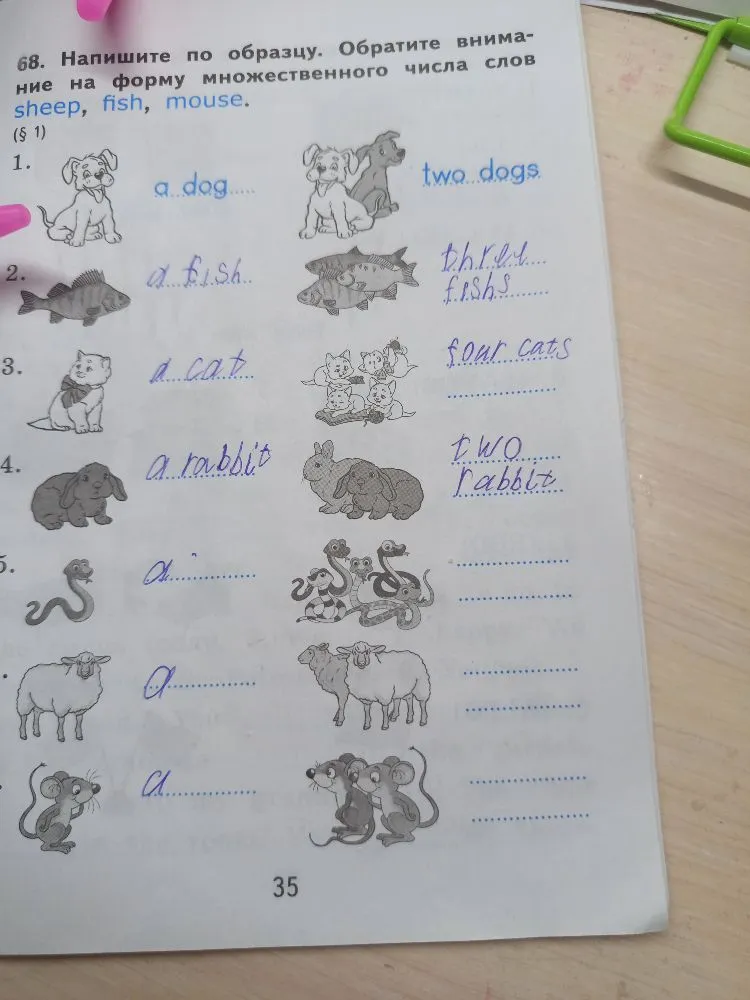 68. Напишите по образцу. Обратите внима-
ние на форму множественного числа слов
sheep, fish, mouse.
(§ 1)
1. a dog two dogs
2. a fish three
fishs
3. a cat four cats
4. a rabbit two
rabbit
5. a
a
a
35